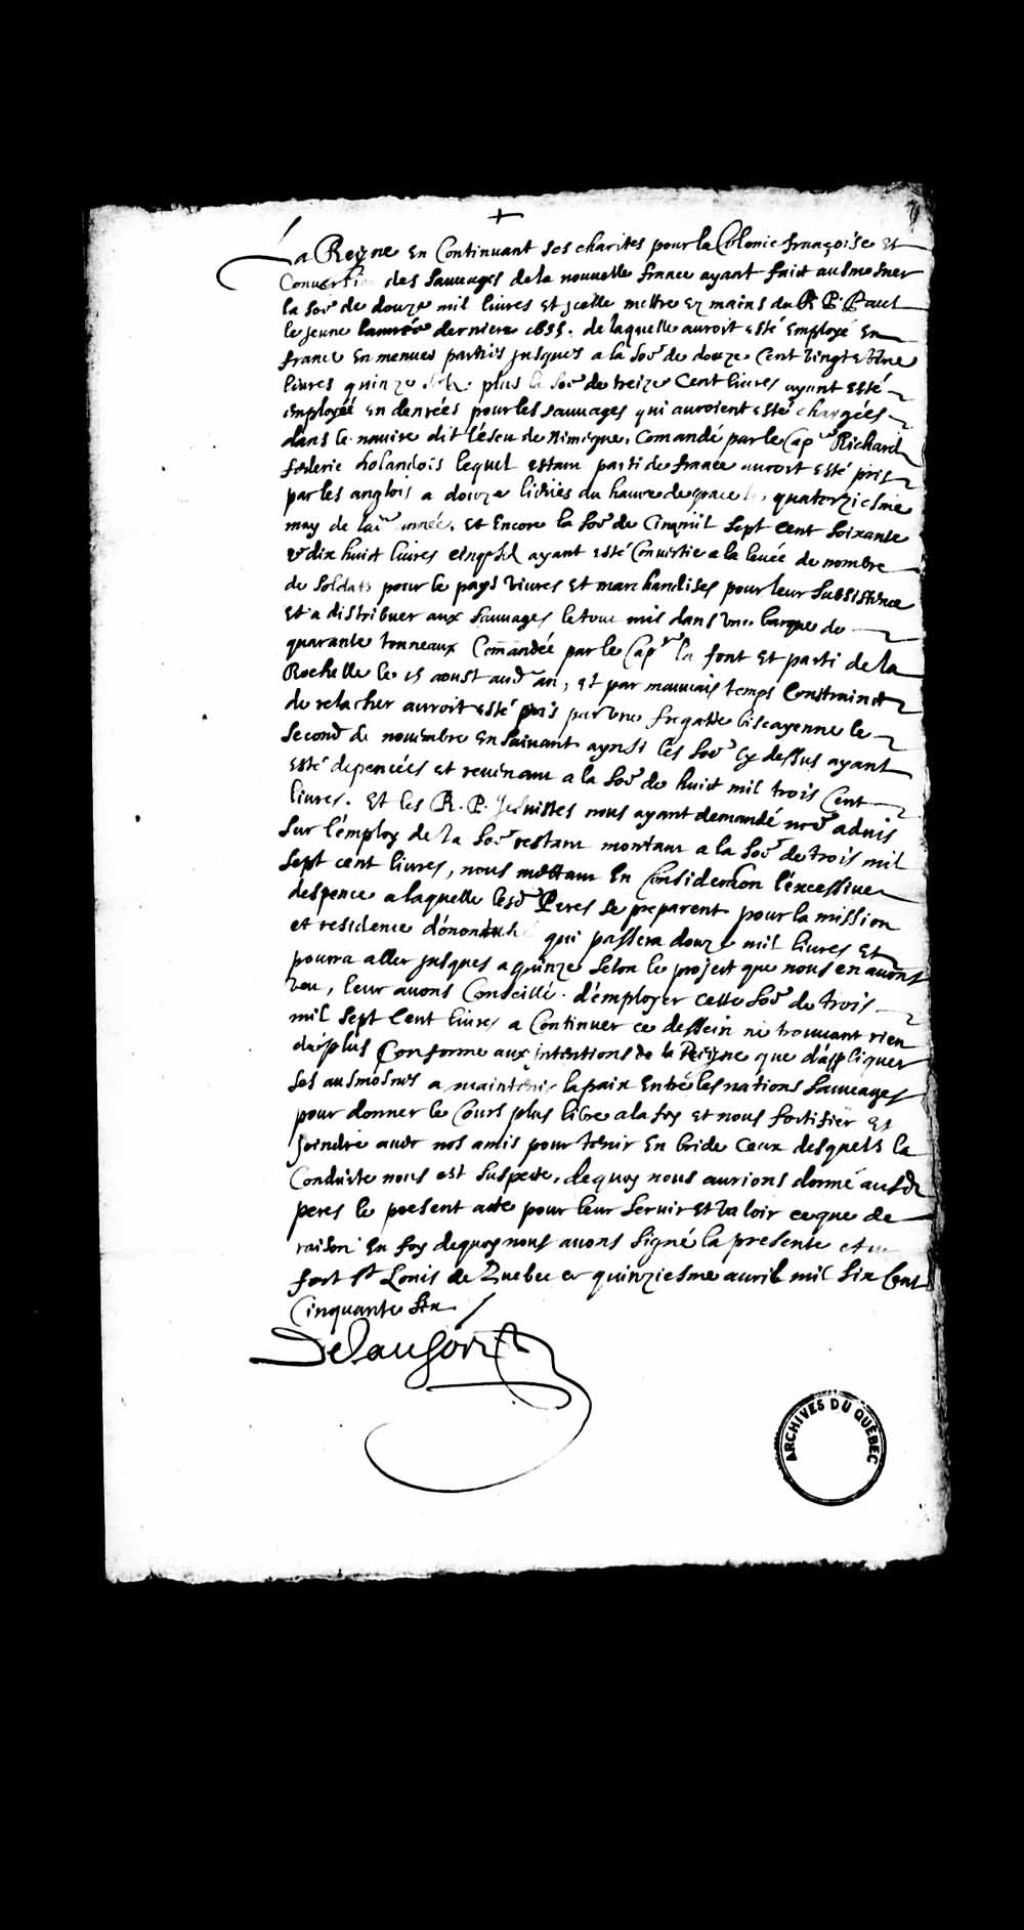 +
La Reyne en Continuant ses charites pour la Colonie françoise et
Conversion des sauuages de la nouuelle france ayant faict ausmosner
la soẽ de douze mil liures et jcelle mettre ez mains du R P. Paul
le jeune lannée derniere 1655. de laquelle auroit esté employé en
france en menues parties jusques a la soẽ de douze cent vingt et une
liures quinze plus la soẽ de treize cent liures ayant esté
employéé en denrées pour les sauuages qui auroient esté chargées
dans le nauire dit l'éscu de Nimegue, Comandé par le Capne Richard
federic holandois lequel estant parti de france auroit esté pris
par les anglois a douze liéües du haure de grace le quatorziesme
may de lad année, et encore la soẽ de Cinq mil sept cent soixante
& dix huict liures cinq sols ayant esté Conuertie a la leuée de nombre
de soldats pour le pays viures et marchandises pour leur subsistence
et a distribuer aux sauuages le tout mis dans vne barque de
quarante tonneaux Comandée par le Capne la font et parti de la
Rochelle le 15 aoust aud an, et par mauuais temps Constrainct
de relacher auroit esté pris par vne fregatte biscayenne le
second de nouembre ensuiuant aynsi les soẽs cy dessus ayant
esté depencées et reuenant a la soẽ de huict mil trois Cent
liures. Et les R. P. Jesuistes nous ayant demandé nrẽ aduis
sur l'émploy de la soẽ restant montant a la soẽ de trois mil
sept cent liures, nous mettant en Consideraon l'éxcessiue
despence a laquelle lesd Peres se preparent pour la mission
et residence d'énontahé qui passera douze mil liures et
pourra aller jusques a quinze selon le project que nous en auons
veu, leur auons Conseillé d'émployer cette soẽ de trois
mil sept cent liures a Continuer ce dessein ne trouuant rien
de plus Conforme aux intentions de la Reyne que d'áppliquer
ses ausmosnes a maintenir la paix entre les nations sauuages
pour donner le Cours plus libre a la foy et nous fortifier et
joindre auec nos amis pour tenir en bride ceux desquels la
Conduite nous est suspecte, de quoy nous aurions donné ausd
peres le present acte pour leur seruir et valoir ce que de
raison en foy de quoy nous auons signé la presente
fort St Louis de Quebec ce quinziesme auril mil six Cent
Cinquante six /
DeLauson
ARCHIVES DU QUÉBEC